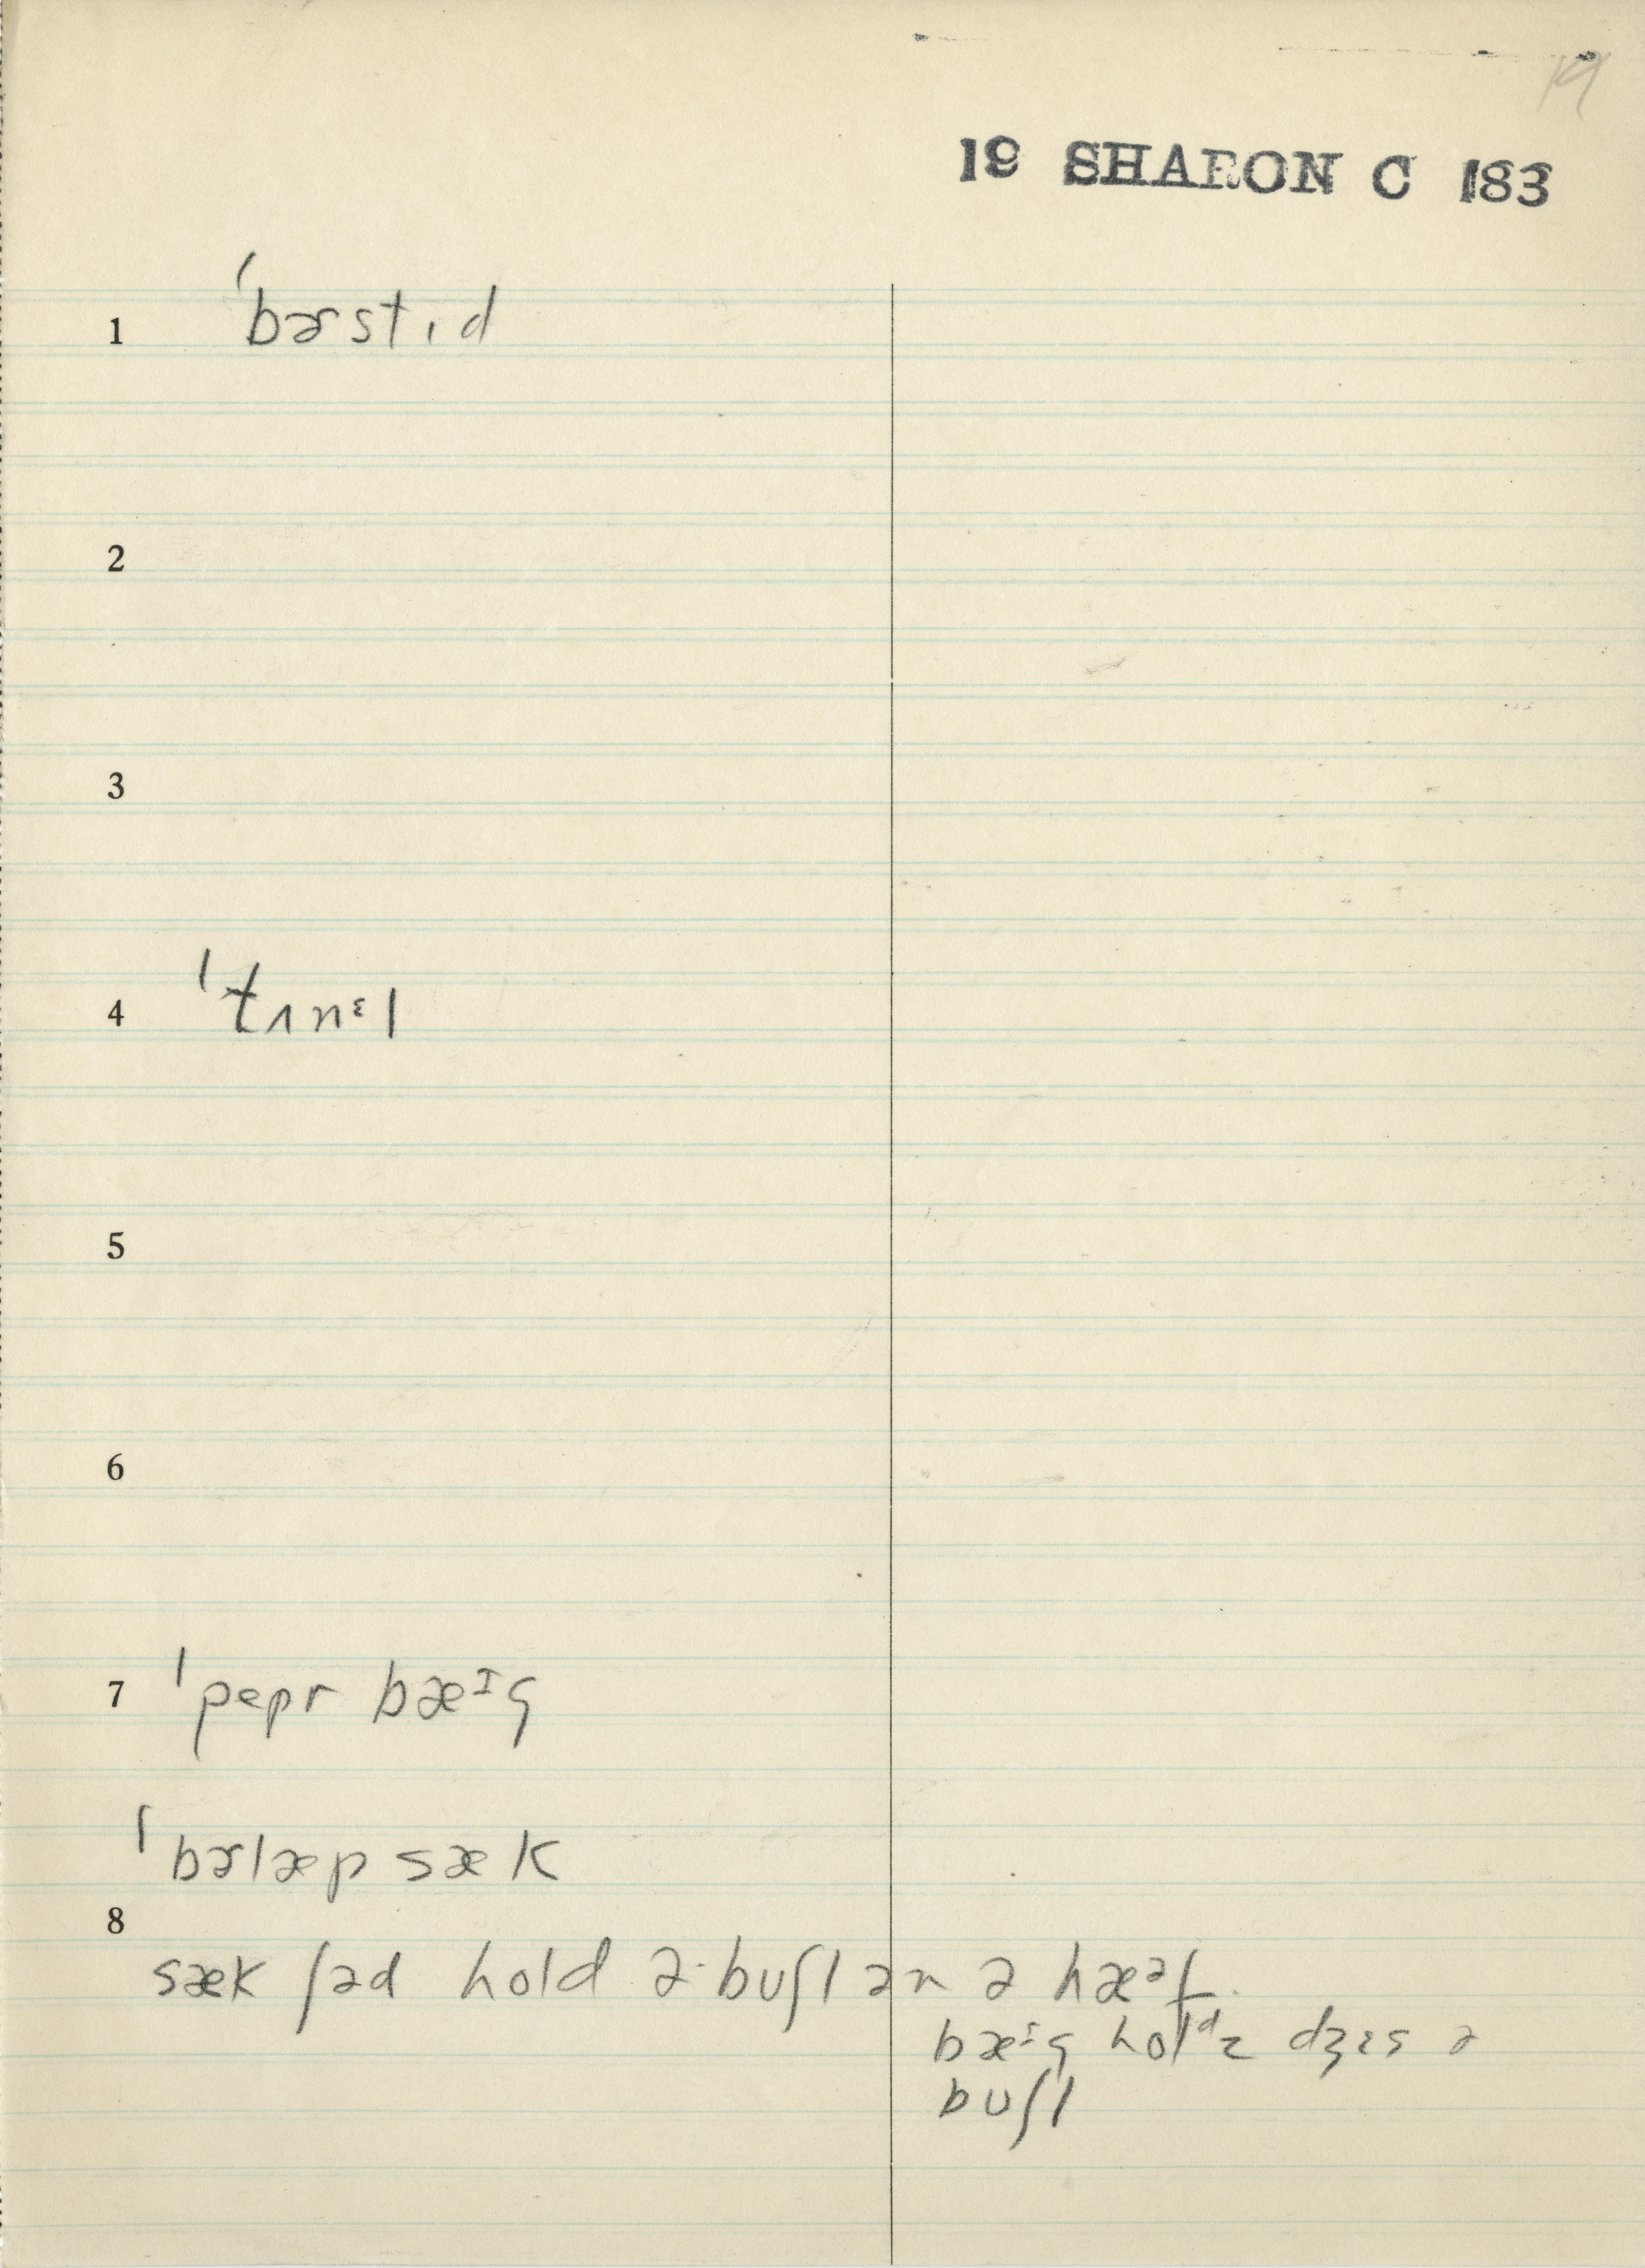 19
19 SHARON C 183
1 ˈbɚstɪd
2
3
4 ˈtʌnᵋl
5
6
7 ˈpepr bæᶦg
ˈbɚlæp sæk
8
sæk ʃəd hold ə buʃl ən ə hæᵊf.
bæᶦg holᵈz dʒɪs ə
buʃl